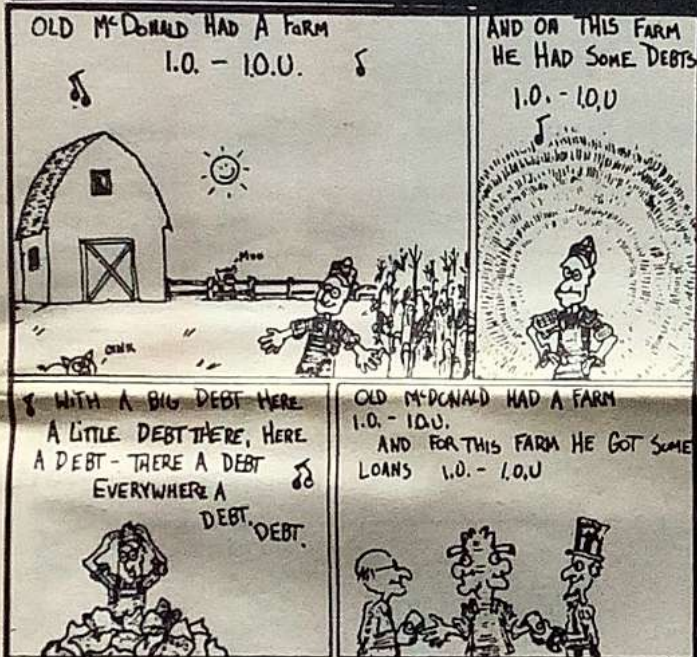 OLD McDONALD HAD A FARM
I.O. - I.O.U.
MOO
OINK
AND ON THIS FARM
HE HAD SOME DEBTS
I.O. - I.O.U
WITH A BIG DEBT HERE
A LITTLE DEBT THERE, HERE
A DEBT - THERE A DEBT
EVERYWHERE A
DEBT, DEBT.
OLD McDONALD HAD A FARM
I.O. - I.O.U.
AND FOR THIS FARM HE GOT SOME
LOANS I.O. - I.O.U